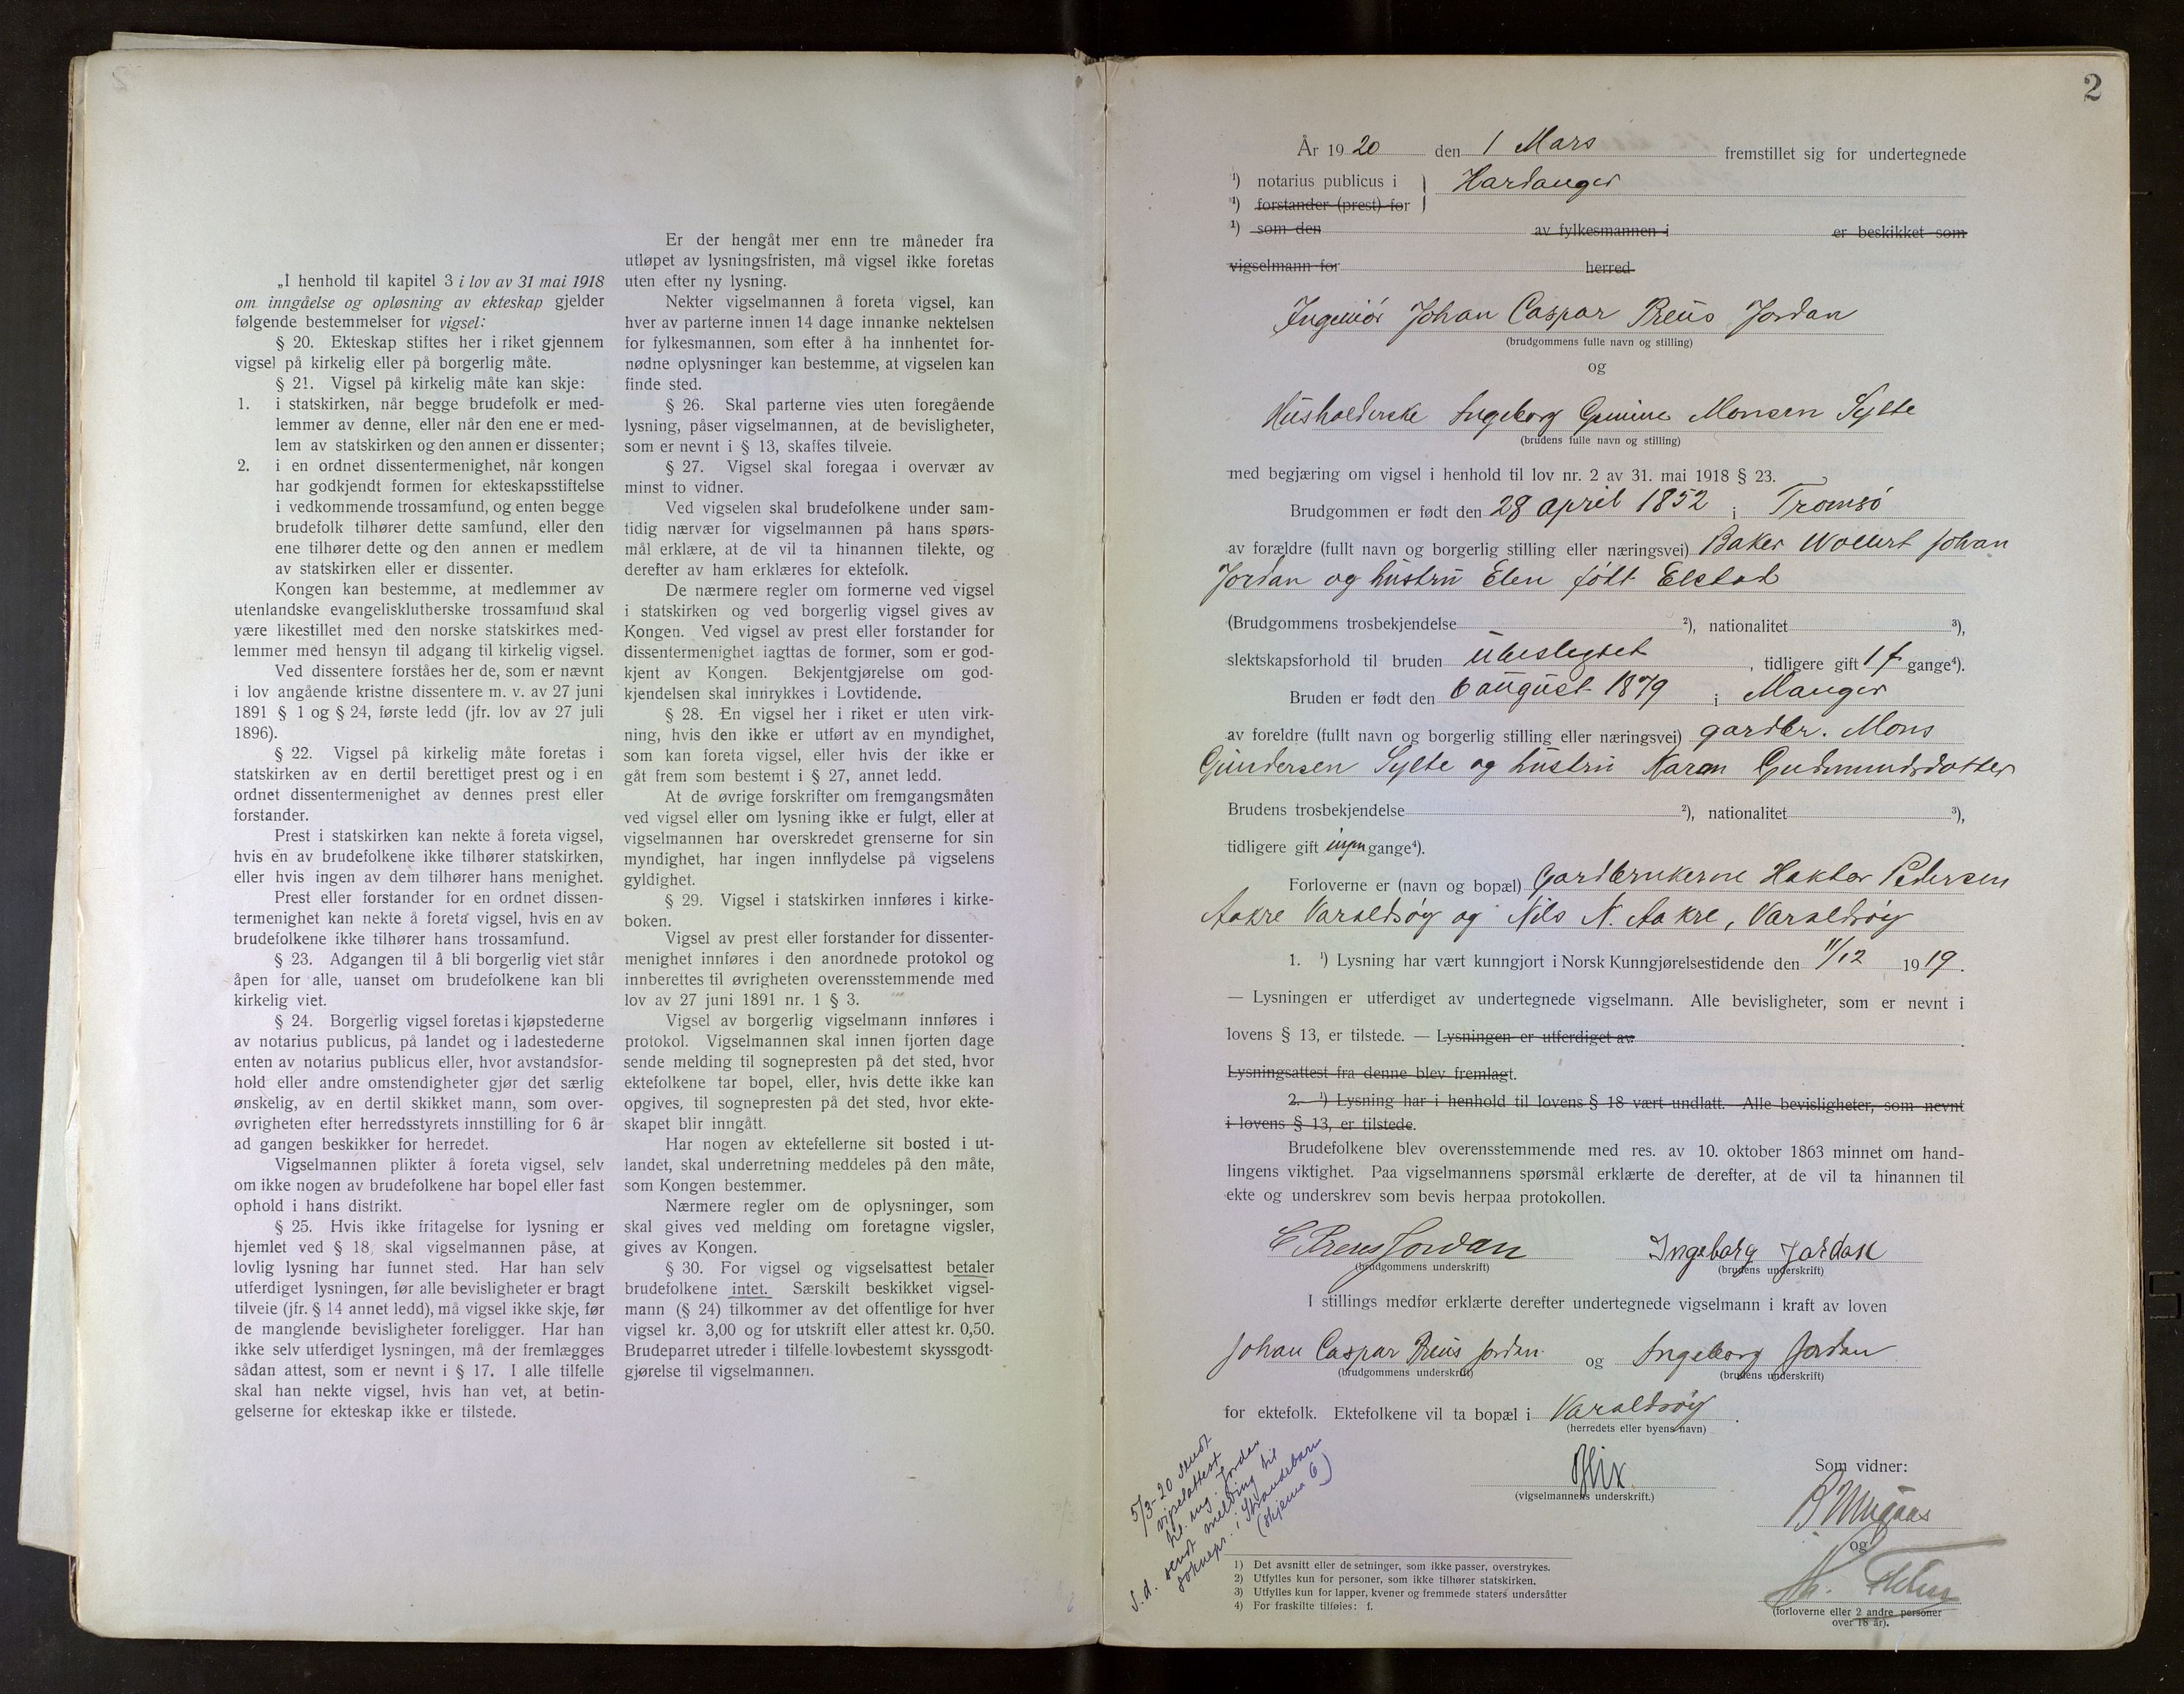 „I henhold til kapitel 3 i lov av 31 mai 1918
om inngåelse og opløsning av ekteskap gjelder
følgende bestemmelser for vigsel:
§ 20. Ekteskap stiftes her i riket gjennem
vigsel på kirkelig eller på borgerlig måte.
§ 21. Vigsel på kirkelig måte kan skje:
1. i statskirken, når begge brudefolk er med-
lemmer av denne, eller når den ene er med-
lem av statskirken og den annen er dissenter;
2. i en ordnet dissentermenighet, når kongen
har godkjendt formen for ekteskapsstiftelse
i vedkommende trossamfund, og enten begge
brudefolk tilhører dette samfund, eller den
ene tilhører dette og den annen er medlem
av statskirken eller er dissenter.
Kongen kan bestemme, at medlemmer av
utenlandske evangelisklutherske trossamfund skal
være likestillet med den norske statskirkes med-
lemmer med hensyn til adgang til kirkelig vigsel.
Ved dissentere forståes her de, som er nævnt
i lov angående kristne dissentere m. v. av 27 juni
1891 § 1 og § 24, første ledd (jfr. lov av 27 juli
1896).
§ 22. Vigsel på kirkelig måte foretas i
statskirken av en dertil berettiget prest og i en
ordnet dissentermenighet av dennes prest eller
forstander.
Prest i statskirken kan nekte å foreta vigsel,
hvis en av brudefolkene ikke tilhører statskirken,
eller hvis ingen av dem tilhører hans menighet.
Prest eller forstander for en ordnet dissen-
termenighet kan nekte å foreta vigsel, hvis en av
brudefolkene ikke tilhører hans trossamfund.
§ 23. Adgangen til å bli borgerlig viet står
åpen for alle, uanset om brudefolkene kan bli
kirkelig viet.
§ 24. Borgerlig vigsel foretas i kjøpstederne
av notarius publicus, på landet og i ladestederne
enten av notarius publicus eller, hvor avstandsfor-
hold eller andre omstendigheter gjør det særlig
ønskelig, av en dertil skikket mann, som over-
øvrigheten efter herredsstyrets innstilling for 6 år
ad gangen beskikker for herredet.
Vigselmannen plikter å foreta vigsel, selv
om ikke nogen av brudefolkene har bopel eller fast
ophold i hans distrikt.
§ 25. Hvis ikke fritagelse for lysning er
hjemlet ved § 18, skal vigselmannen påse, at
lovlig lysning har funnet sted. Har han selv
utferdiget lysningen, før alle bevisligheter er bragt
tilveie (jfr. § 14 annet ledd), må vigsel ikke skje, før
de manglende bevisligheter foreligger. Har han
ikke selv utferdiget lysningen, må der fremlægges
sådan attest, som er nevnt i § 17. I alle tilfelle
skal han nekte vigsel, hvis han vet, at betin-
gelserne for ekteskap ikke er tilstede.
Er der hengåt mer enn tre måneder fra
utløpet av lysningsfristen, må vigsel ikke foretas
uten efter ny lysning.
Nekter vigselmannen å foreta vigsel, kan
hver av parterne innen 14 dage innanke nektelsen
for fylkesmannen, som efter å ha innhentet for-
nødne oplysninger kan bestemme, at vigselen kan
finde sted.
§ 26. Skal parterne vies uten foregående
lysning, påser vigselmannen, at de bevisligheter,
som er nevnt i § 13, skaffes tilveie.
§ 27. Vigsel skal foregaa i overvær av
minst to vidner.
Ved vigselen skal brudefolkene under sam-
tidig nærvær for vigselmannen på hans spørs-
mål erklære, at de vil ta hinannen tilekte, og
derefter av ham erklæres for ektefolk.
De nærmere regler om formerne ved vigsel
i statskirken og ved borgerlig vigsel gives av
Kongen. Ved vigsel av prest eller forstander for
dissentermenighet iagttas de former, som er god-
kjent av Kongen. Bekjentgjørelse om god-
kjendelsen skal innrykkes i Lovtidende.
§ 28. En vigsel her i riket er uten virk-
ning, hvis den ikke er utført av en myndighet,
som kan foreta vigsel, eller hvis der ikke er
gåt frem som bestemt i § 27, annet ledd.
At de øvrige forskrifter om fremgangsmåten
ved vigsel eller om lysning ikke er fulgt, eller at
vigselmannen har overskredet grenserne for sin
myndighet, har ingen innflydelse på vigselens
gyldighet.
§ 29. Vigsel i statskirken innføres i kirke-
boken.
Vigsel av prest eller forstander for dissenter-
menighet innføres i den anordnede protokol og
innberettes til øvrigheten overensstemmende med
lov av 27 juni 1891 nr. 1 § 3.
Vigsel av borgerlig vigselmann innføres i
protokol. Vigselmannen skal innen fjorten dage
sende melding til sognepresten på det sted, hvor
ektefolkene tar bopel, eller, hvis dette ikke kan
opgives, til sognepresten på det sted, hvor ekte-
skapet blir inngått.
Har nogen av ektefellerne sit bosted i ut-
landet, skal underretning meddeles på den måte,
som Kongen bestemmer.
Nærmere regler om de oplysninger, som
skal gives ved melding om foretagne vigsler,
gives av Kongen.
§ 30. For vigsel og vigselsattest betaler
brudefolkene intet. Særskilt beskikket vigsel-
mann (§ 24) tilkommer av det offentlige for hver
vigsel kr. 3,00 og for utskrift eller attest kr. 0,50.
Brudeparret utreder i tilfelle lovbestemt skyssgodt-
gjørelse til vigselmannen.
2
År 1920 den 1 Mars fremstillet sig for undertegnede
1) notarius publicus i Hardanger
1) forstander (prest) for
1) som den av fylkesmannen i er beskikket som
vigselmann for herred
Ingeniør Johan Caspar Preus Jordan
(brudgommens fulle navn og stilling)
og
Husholderske Ingeborg Gurine Monsen Sylte
(brudens fulle navn og stilling)
med begjæring om vigsel i henhold til lov nr. 2 av 31. mai 1918 § 23.
Brudgommen er født den 28 april 1852 i Tromsö
av forældre (fullt navn og borgerlig stilling eller næringsvei) Baker Wollert Johan
Jordan og hustru Elen födt Elstad
(Brudgommens trosbekjendelse 2), nationalitet 3),
slektskapsforhold til bruden ubeslegtet, tidligere gift 1 f gange4).
Bruden er født den 6 august 1879 i Manger
av foreldre (fullt navn og borgerlig stilling eller næringsvei) gardbr. Mons
Gundersen Sylte og hustru Karen Gudmundsdotter
Brudens trosbekjendelse 2), nationalitet 3),
tidligere gift ingen gange4).
Forloverne er (navn og bopæl) Gardbrukerne Haktor Pedersen
Aakre Varaldsöy og Nils N. Aakre, Varaldsöy
1. 1) Lysning har vært kunngjort i Norsk Kunngjørelsestidende den 11/12 1919.
— Lysningen er utferdiget av undertegnede vigselmann. Alle bevisligheter, som er nevnt i
lovens § 13, er tilstede. — Lysningen er utferdiget av
Lysningsattest fra denne blev fremlagt.
2. 1) Lysning har i henhold til lovens § 18 vært undlatt. Alle bevisligheter, som nevnt
i lovens § 13, er tilstede.
Brudefolkene blev overensstemmende med res. av 10. oktober 1863 minnet om hand-
lingens viktighet. Paa vigselmannens spørsmål erklærte de derefter, at de vil ta hinannen til
ekte og underskrev som bevis herpaa protokollen.
C Preus Jordan Ingeborg Jordan
(brudgommens underskrift) (brudens underskrift)
I stillings medfør erklærte derefter undertegnede vigselmann i kraft av loven
Johan Caspar Preus Jordan og Ingeborg Jordan
(brudgommens underskrift) (brudens underskrift)
for ektefolk. Ektefolkene vil ta bopæl i Varaldsöy.
(herredets eller byens navn)
(vigselmannens underskrift.)
Som vidner:
og
(forloverne eller 2 andre personer
over 18 år).
5/3-20 sendt
vigselattest
til ing. Jordan
S. d. sendt melding til
soknepr. i Strandebarm
(skjema 6)
1) Det avsnitt eller de setninger, som ikke passer, overstrykes.
2) Utfylles kun for personer, som ikke tilhører statskirken.
3) Utfylles kun for lapper, kvener og fremmede staters undersåtter
4) For fraskilte tilføies: f.